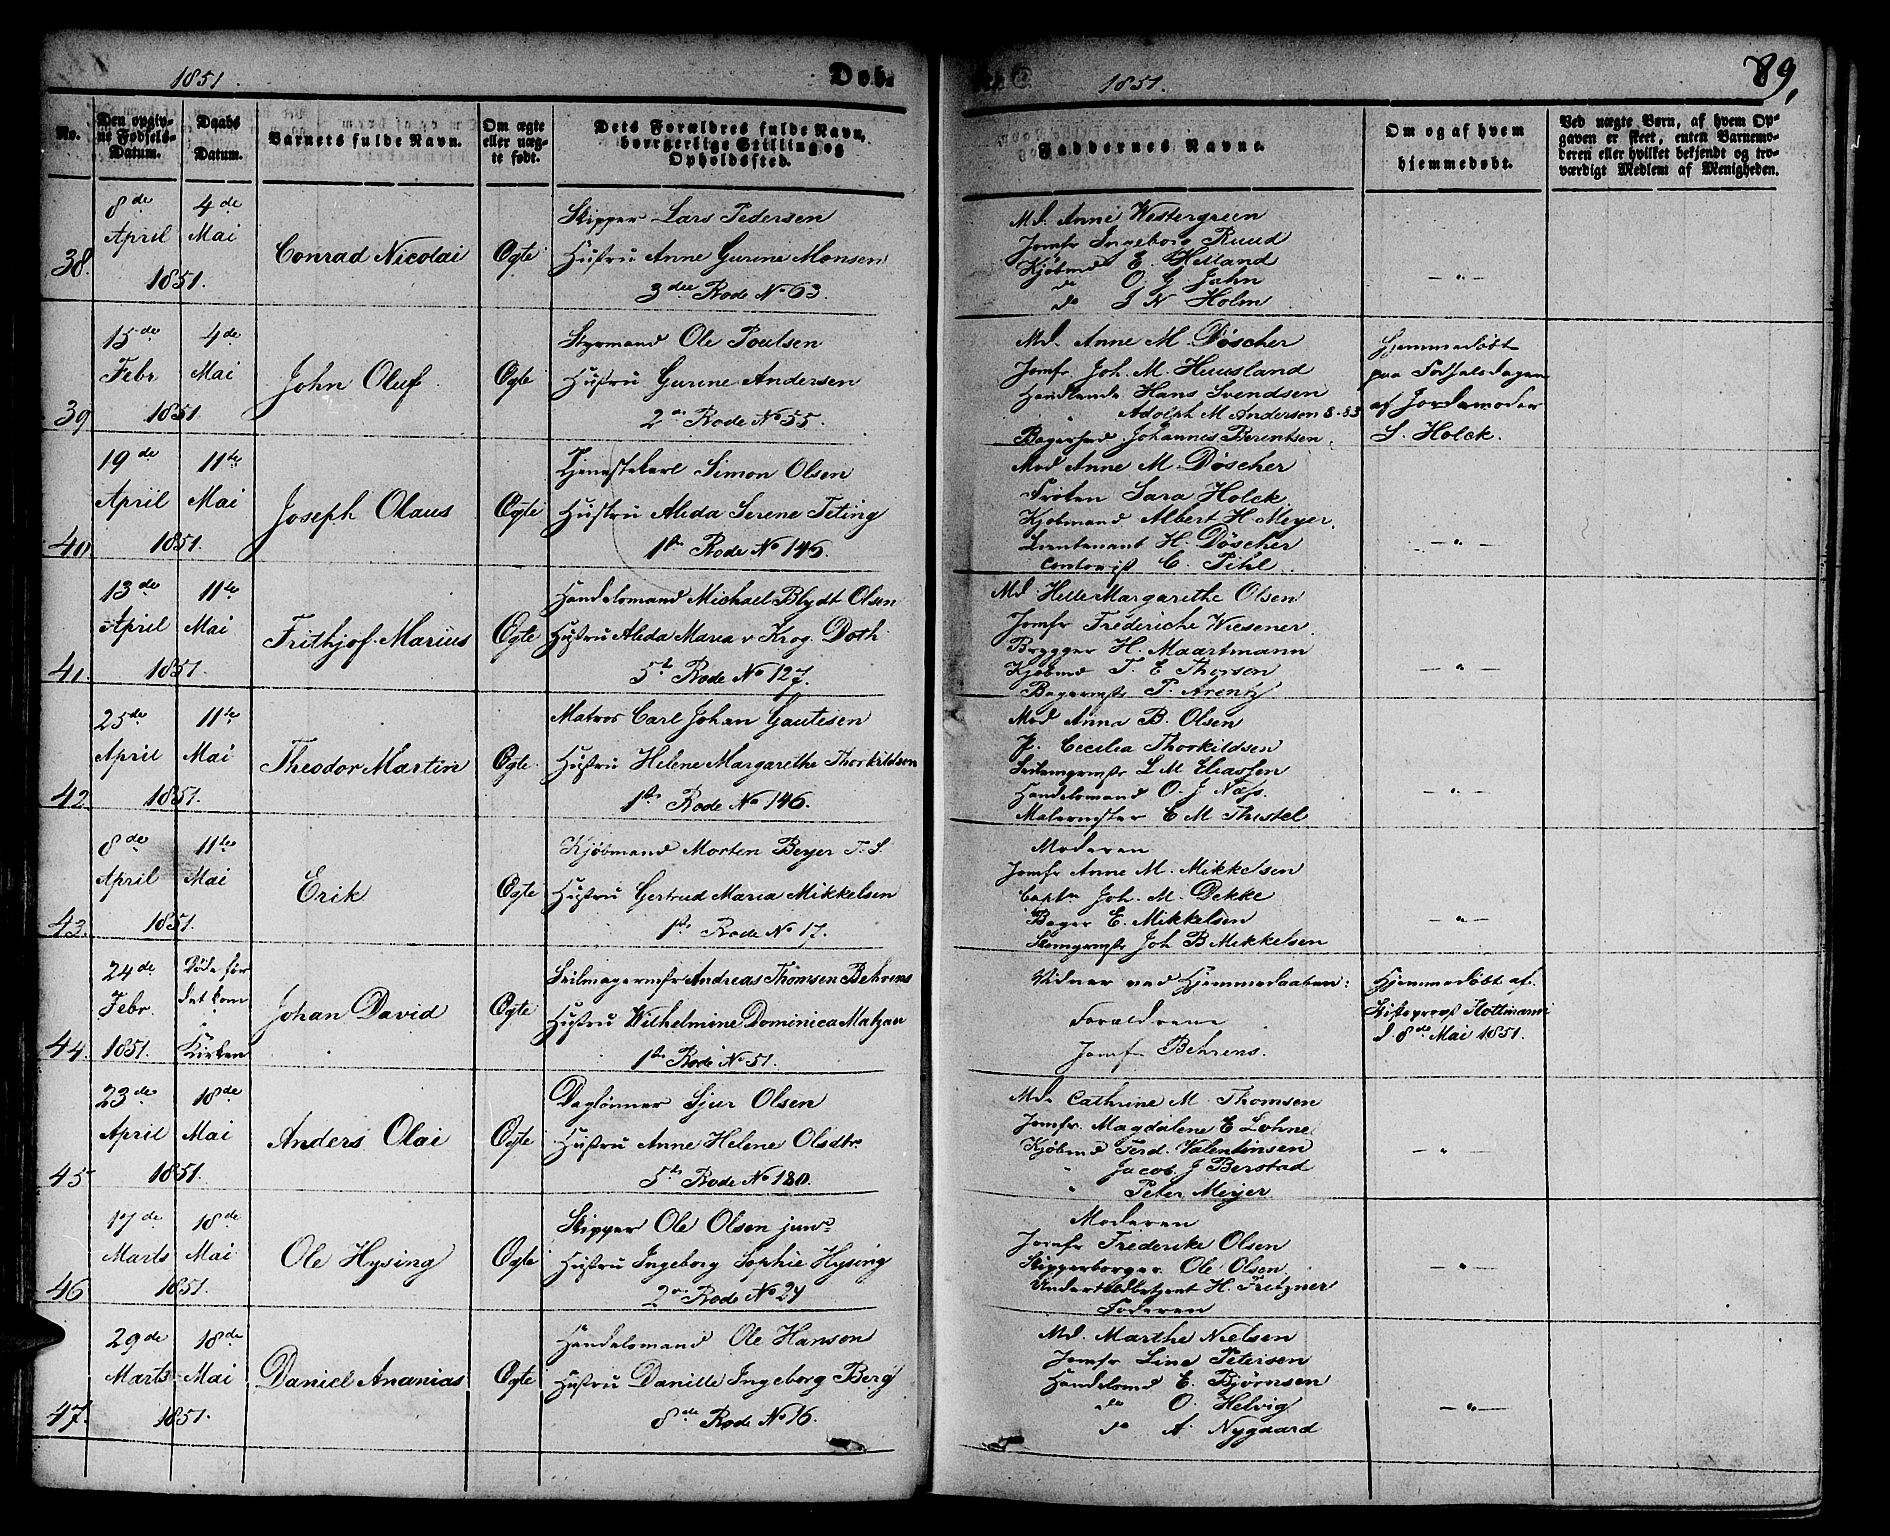 1851.
Døb.
No.
Den opgiv-
ne Fødsels-
Datum.
Daabs
Datum.
Barnets fulde Navn.
Om ægte
eller uæg-
te født.
Dets Forældres fulde Navn,
borgerlige Stilling og
Opholdssted.
38.
8de
April
1851.
4de
Mai
Conrad Nicolai
Ægte
Skipper Lars Pedersen
Hustru Anne Gurine Monsen
3die Rode No 63.
39
15de
Febr
1851.
4de
Mai
John Oluf.
Ægte
Styrmand Ole Poulsen
Hustru Gurine Andersen
2den Rode No 55.
40
19de
April
1851.
11te
Mai
Joseph Olaus
Ægte
Tjenestekarl Simon Olsen
Hustru Alida Serene Teting
1ste Rode No 146.
41.
13de
April
1851.
11te
Mai
Frithjof Marius
Ægte
Handelsmand Michael Blydt Olsen
Hustru Alida Maria v Krog Doth
5te Rode No 127.
42.
25de
April
1851.
11te
Mai
Theodor Martin
Ægte.
Matros Carl Johan Gautesen
Hustru Helene Margarethe Thorkildsen
1ste Rode No 146.
43.
8de
April
1851.
11te
Mai
Erik
Ægte
Kjøbmand Morten Beyer T. S.
Hustru Gertrud Maria Mikkelsen
1ste Rode No 17.
44.
24de
Febr.
1851.
Døde før
det kom
Kirken
Johan David
Ægte
Seilmagermstr Andreas Thomsen Behrens
Hustru Wilhelmine Dominica Matzan
1ste Rode No 51.
45
23de
April
1851.
18de
Mai
Anders Olai
Ægte
Dagløнner Sjur Olsen
Hustru Anne Helene Olsdtr.
5te Rode No 180.
46
17de
Marts
1851.
18de
Mai
Ole Hysing
Ægte
Skipper Ole Olsen junr
Hustru Ingeborg Sophie Hysing
2den Rode No 24
47.
29de
Marts
1851.
18de
Mai
Daniel Ananias
Ægte
Handelsmand Ole Hansen
Hustru Danille Ingeborg Berg
8de Rode No 16.
1851.
89,
Faddernes Navne.
Om og af hvem
hjemmedøbt.
Ved uægte Børn, af hvem Op-
gaven er skeet, enten Barnemo-
deren eller hvilket bekjendt og tro-
værdigt Medlem af Menigheden.
Md. Anne Westergreen
Jomfr Ingeborg Ruud
Kjøbmd E. Helland
do O. G Jahn
do J N Holm
Md. Anne M. Døscher
Jomfr. Joh. M. Huusland
Handlende Hans Svendsen
" Adolph M Andersen
Bagersvd Johannes Berentsen.
Hjemmedøbt
paa Fødselsdagen
af Jordemoder
S. Holck.
Mad Anne M. Døscher
Frøken Sara Holck
Kjøbmand Albert H Meyer.
Lieutenant H. Døscher
Contorist C. Pihl.
Md Helle Margarethe Olsen
Jomfr Frederiche Wiesener.
Brygger H. Maartmann
Kjøbmd T. E Thorsen
Bagermstr P. Arentz
Mad Anna B. Olsen
J. Cecilia Thorkildsen
Seilmgrmstr L M Eliassen
Handelsmand O. J Næss.
Malermester E M Thistel
Moderen
Jomfr Anne M. Mikkelsen
Captn Joh. M. Dekke
Bager E. Mikkelsen
Joh B Mikkelsen
Vidner ved Hjemmedaaben:
Forældrene
Jomfr Behrens.
Hjemmedøbt af
Stiftsprovst Kottmann
d. 8de Mai 1851.
Md. Cathrine M. Thomsen
Jomfr. Magdalene E Lohne
Kjøbmd Ferd. Valentinsen
" Jacob J Berstad
" Peter Meyer
Moderen
Jomfr Frederike Olsen
Skipperborger Ole Olsen
Undertoldbetjent H. Fritzner
Faderen
Md. Marthe Nielsen
Jomfr Line Petersen
Handelsmd E. Bjørnsen
do O. Helvig
do A. Nygaard